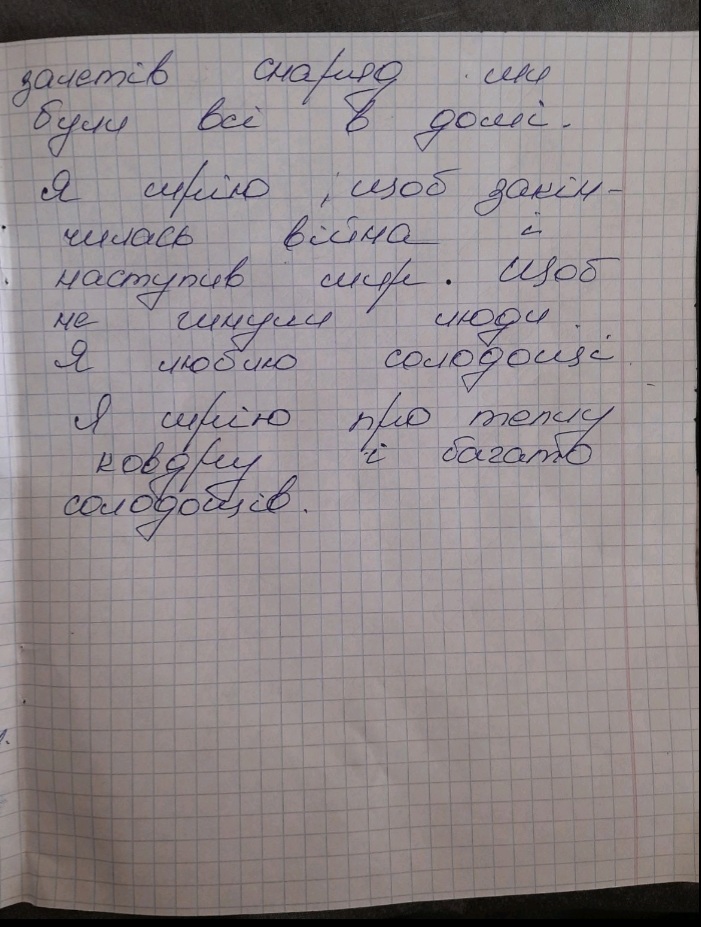 залетів снаряд ми
були всі в домі.
Я мрію, щоб закін-
чилась війна і
наступив мир. Щоб
не гинули люди.
Я люблю солодощі
Я мрію про теплу
ковдру і багато
солодощів.